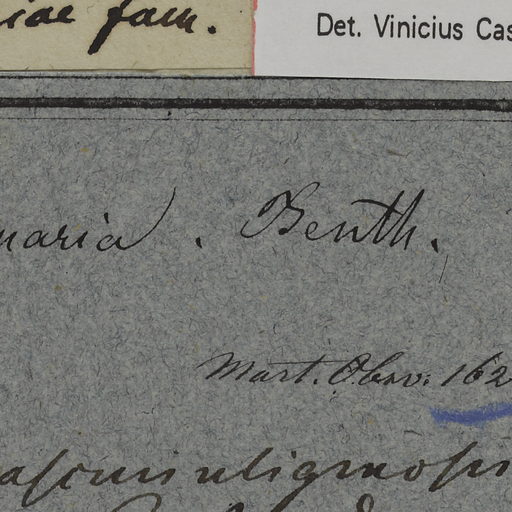 iae fam.
Det. Vinicius Cas
naria . Benth.
Mart. Obsv: 162